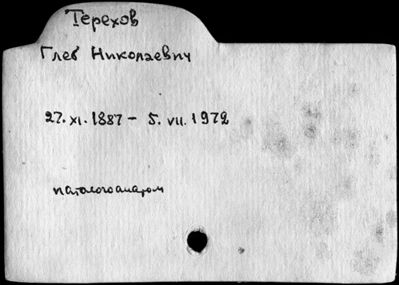 Терехов
Глеб Николаевич
27. XI. 1887 - 5. VII. 1972
патологоанатом